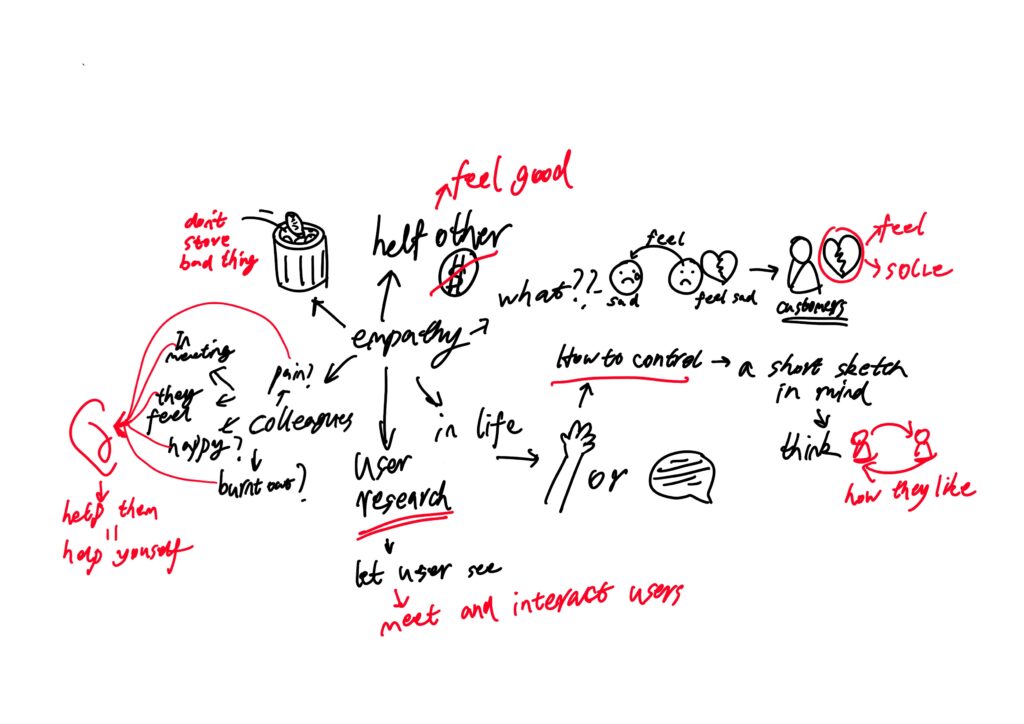 feel good
help other
$
don't
store
bad thing
empathy
what??
feel
sad
feel sad
customers
feel
solve
How to control
a short sketch
in mind
think
how they like
in life
or
pain?
colleagues
In
meeting
they
feel
happy?
burnt out?
help them
help yourself
user
research
let user see
meet and interact users